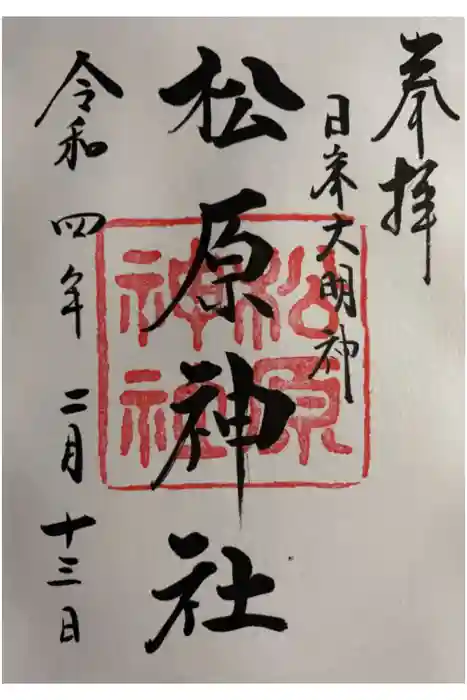 奉拝
日來大明神
松原神社
松原神社
令和四年二月十三日